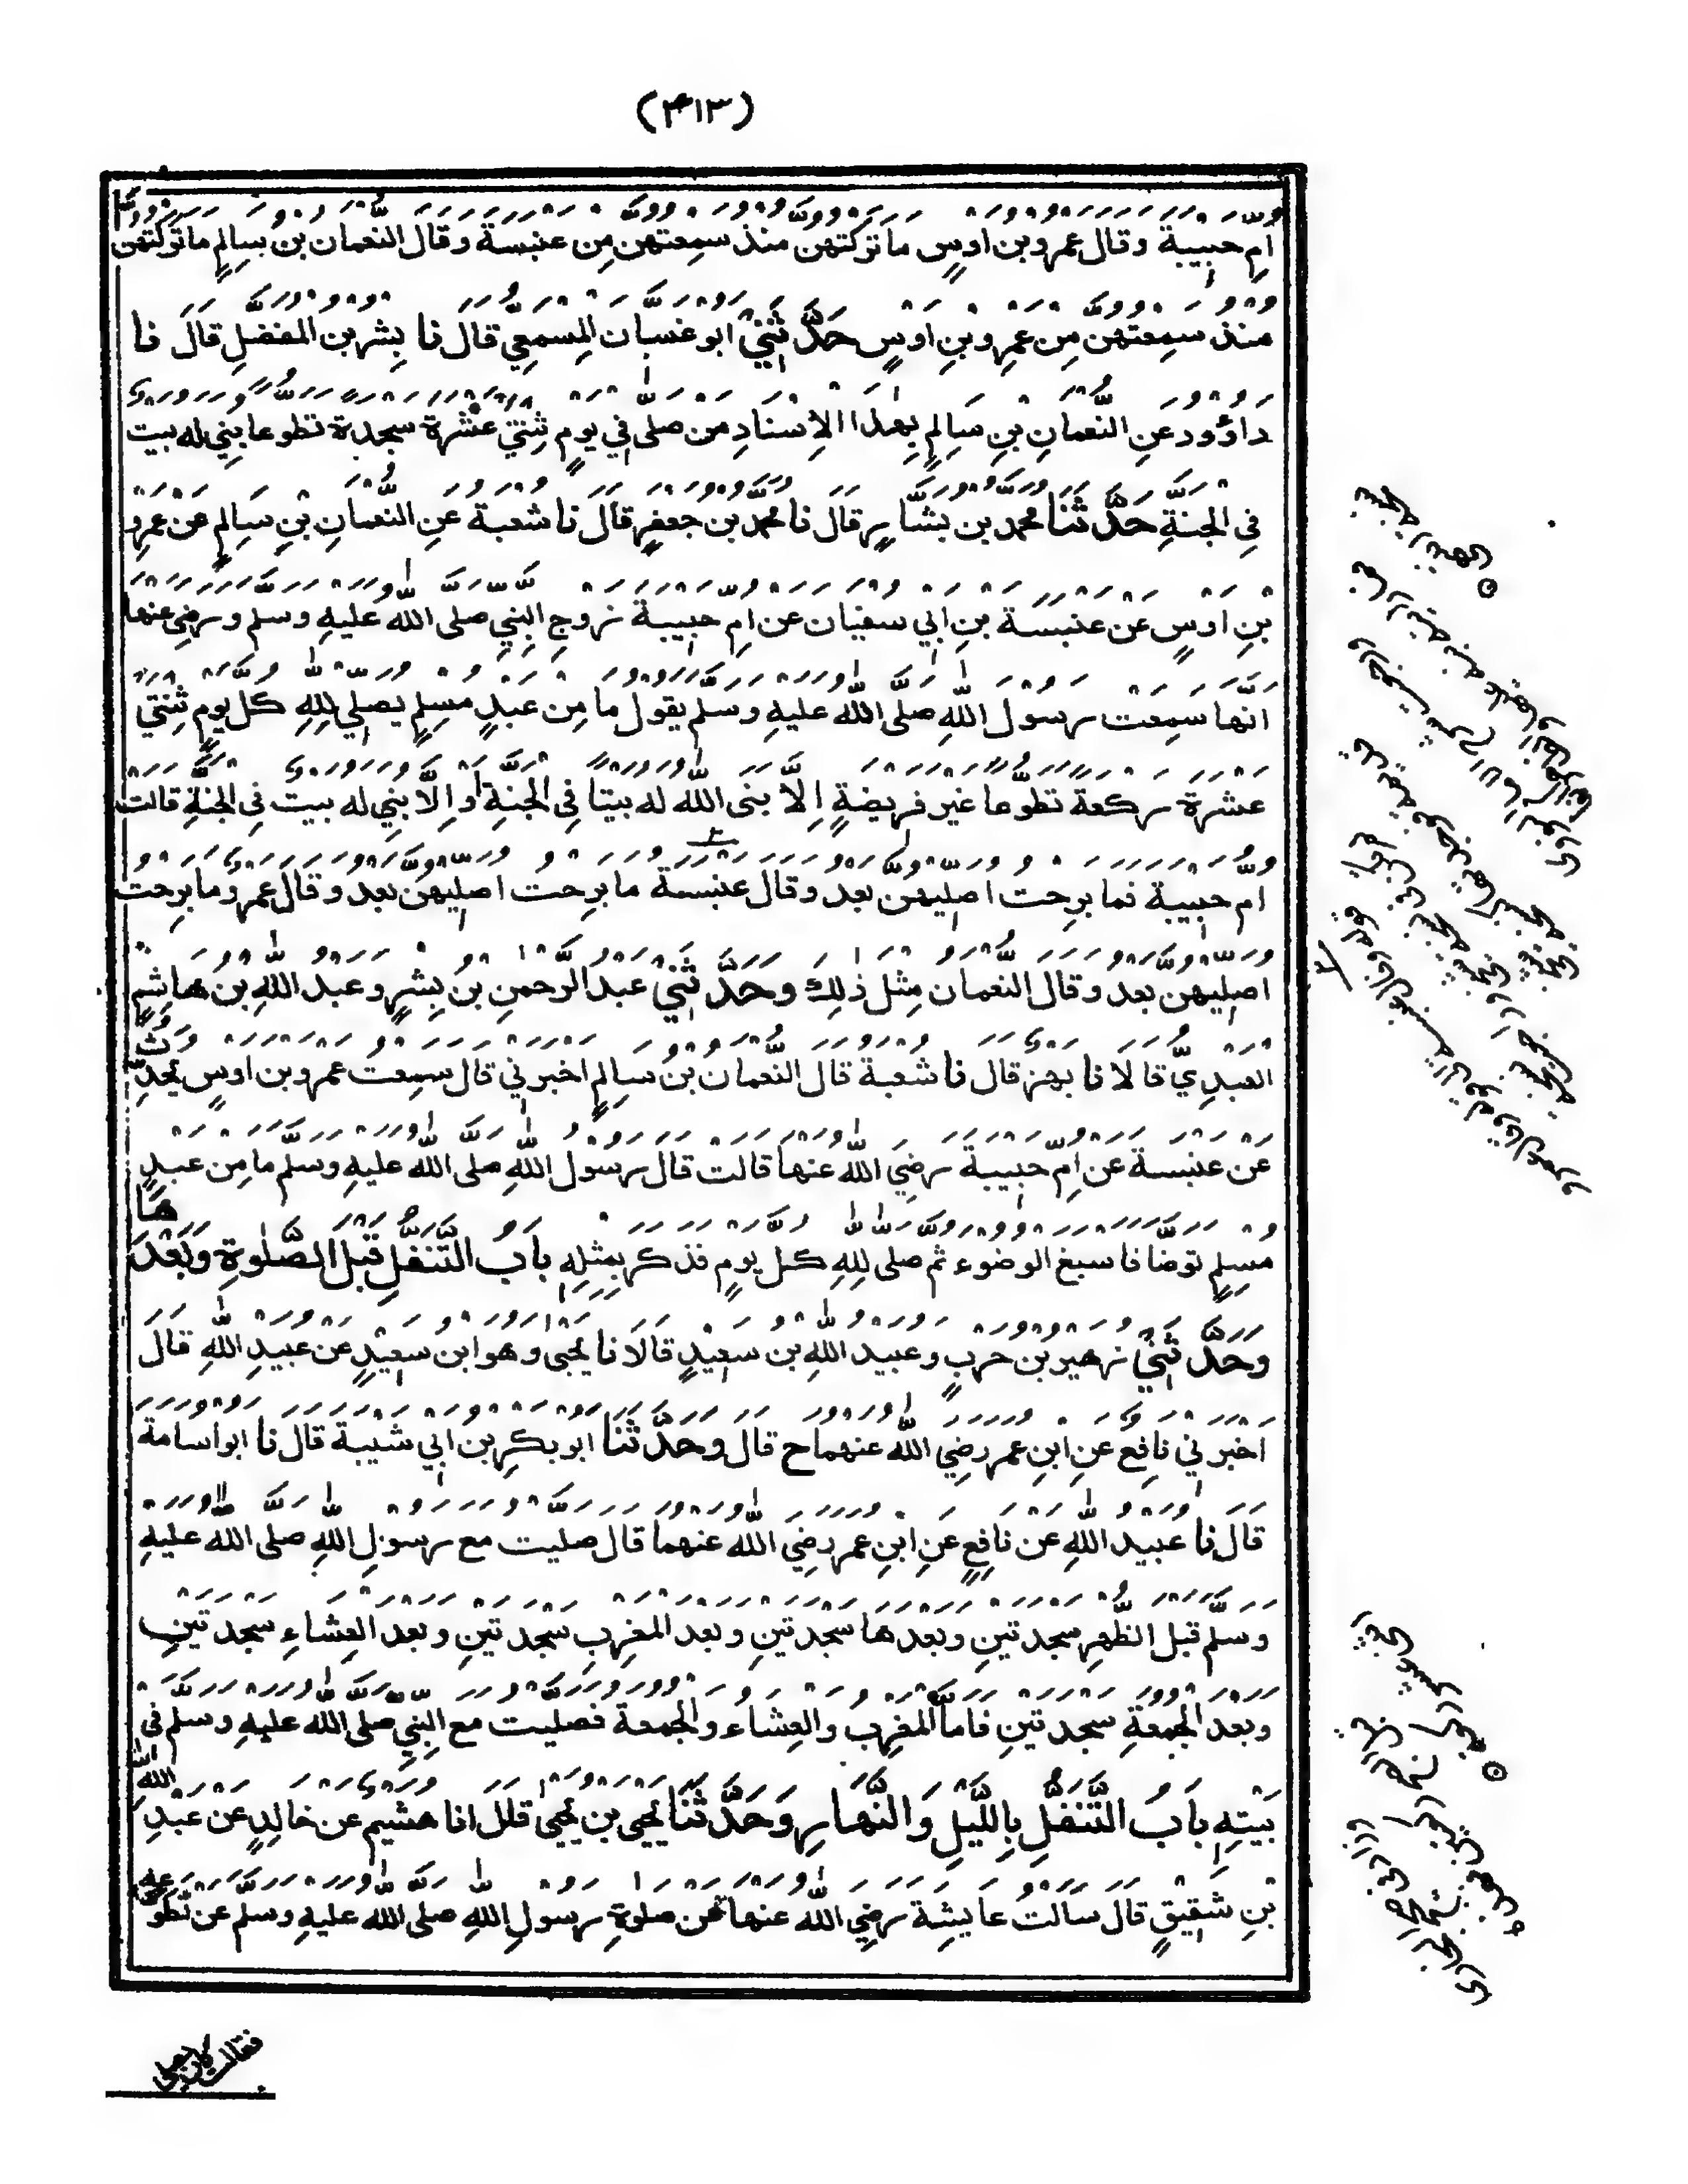 (۴۱۳)
أم حبيبة وقال عمرو بن اوس ما تركتهن منذ سمعتهن من عنبسة وقال النعمان بن سالم ما تركتهن
منذ سمعتهن من عمرو بن اوس حدثني ابو غسان المسمعي قال نا بشر بن المفضل قال نا
داؤود عن النعمان بن سالم بهذا الاسناد من صلى في يوم ثنتي عشرة سجدة تطوعا بني له بيت
في الجنة حدثنا محمد بن بشار قال نا محمد بن جعفر قال نا شعبة عن النعمان بن سالم عن عمرو
بن اوس عن عنبسة بن ابي سفيان عن ام حبيبة زوج النبي صلى الله عليه وسلم ورضي عنها
انها سمعت رسول الله صلى الله عليه وسلم يقول ما من عبد مسلم يصلي لله كل يوم ثنتي
عشرة ركعة تطوعا غير فريضة إلا بنى الله له بيتا في الجنة او إلا بني له بيت في الجنة قالت
ام حبيبة فما برحت اصليهن بعد وقال عنبسة ما برحت اصليهن بعد وقال عمرو ما برحت
اصليهن بعد وقال النعمان مثل ذلك وحدثني عبد الرحمن بن بشر وعبد الله بن هاشم
العبدي قالا نا بهز قال نا شعبة قال النعمان بن سالم اخبرني قال سمعت عمرو بن اوس يحدث
عن عنبسة عن ام حبيبة رضي الله عنها قالت قال رسول الله صلى الله عليه وسلم ما من عبد
مسلم توضا فاسبغ الوضوء ثم صلى لله كل يوم فذكر بمثله باب التنفل قبل الصلوة وبعدها
وحدثني زهير بن حرب وعبيد الله بن سعيد قالا نا يحيى وهو ابن سعيد عن عبيد الله قال
اخبرني نافع عن ابن عمر رضي الله عنهما ح قال وحدثنا ابو بكر بن ابي شيبة قال نا ابو اسامة
قال نا عبيد الله عن نافع عن ابن عمر رضي الله عنهما قال صليت مع رسول الله صلى الله عليه
وسلم قبل الظهر سجدتين وبعدها سجدتين وبعد المغرب سجدتين وبعد العشاء سجدتين
وبعد الجمعة سجدتين فاما المغرب والعشاء والجمعة فصليت مع النبي صلى الله عليه وسلم في
بيته باب التنفل بالليل والنهار وحدثنا يحيى بن يحيى قال انا هشيم عن خالد عن عبد الله
بن شقيق قال سالت عايشة رضي الله عنها عن صلوة رسول الله صلى الله عليه وسلم عن تطوعه
فقالت كان يصلي